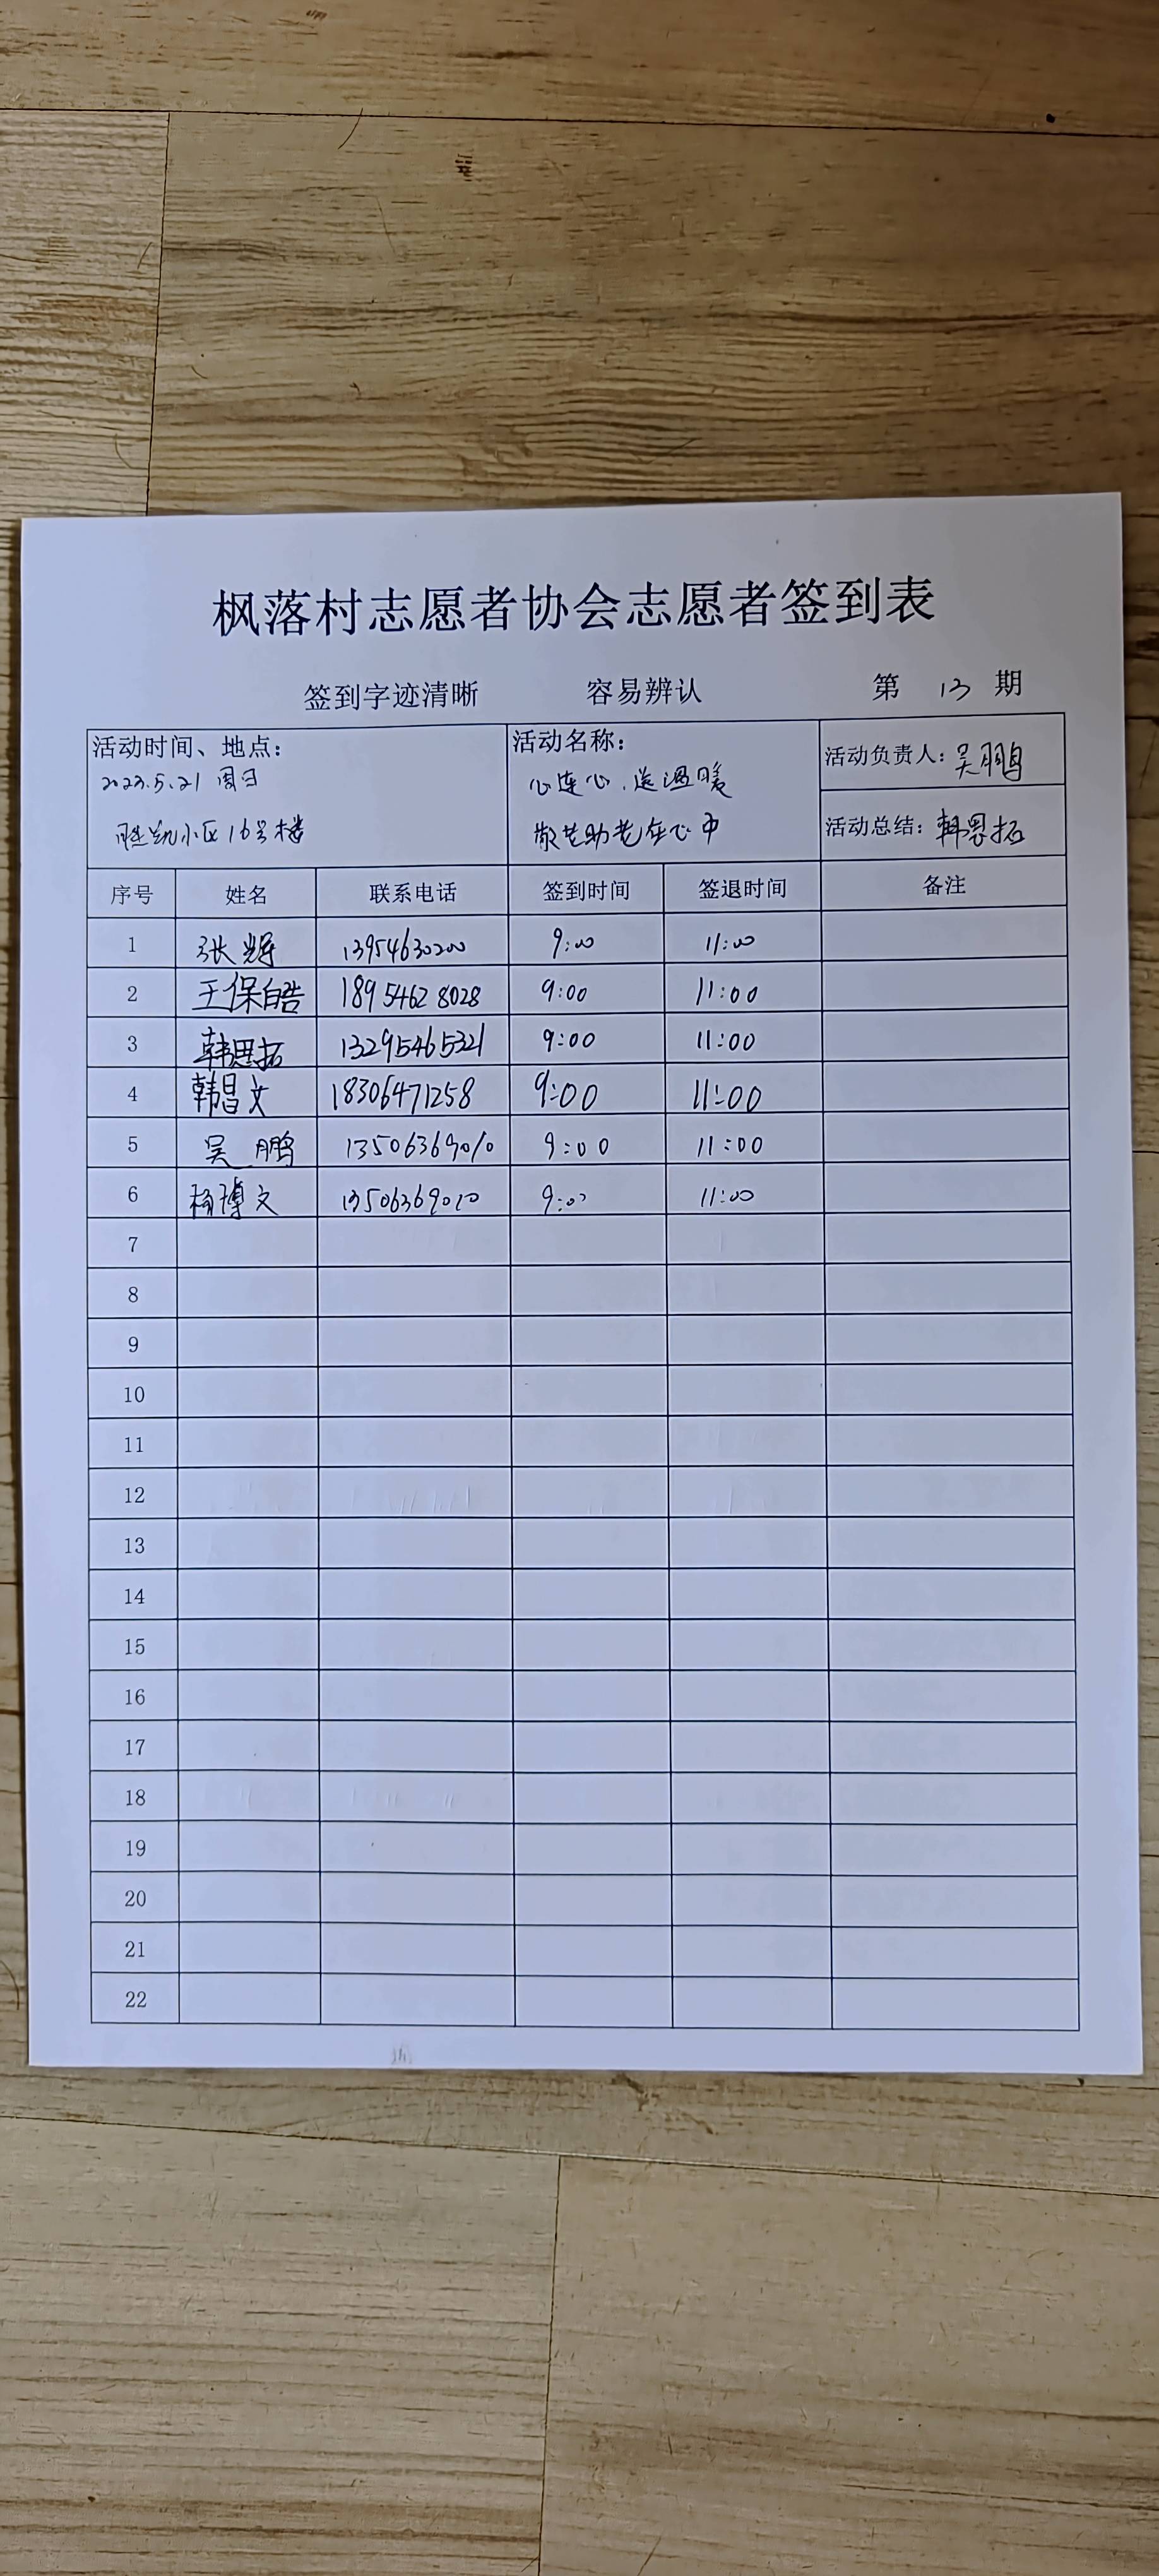 枫落村志愿者协会志愿者签到表
签到字迹清晰 容易辨认 第 13 期
活动时间、地点: 活动名称: 活动负责人: 吴鹏
2023.5.21 周日 心连心.送温暖
小区16号楼 助老在心中 活动总结: 韩思拓
序号 姓名 联系电话 签到时间 签退时间 备注
1 张辉 13954630200 9:00 11:00
2 王保皓 18954628028 9:00 11:00
3 韩思拓 13295465321 9:00 11:00
4 韩昌文 18306471258 9:00 11:00
5 吴鹏 13506369010 9:00 11:00
6 杨博文 13506369010 9:00 11:00
7
8
9
10
11
12
13
14
15
16
17
18
19
20
21
22